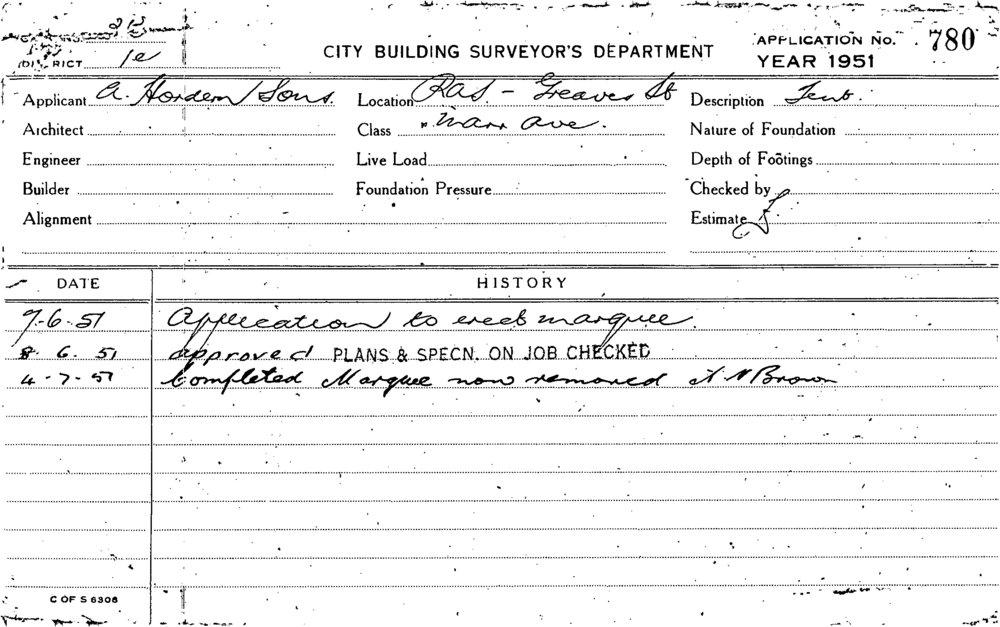 CITY BUILDING SURVEYOR'S DEPARTMENT
APPLICATION No. 780
YEAR 1951
DISTRICT 1e
Applicant A. Hordern Sons. Location RAS - Greaves St Description Tent.
Architect Class Ave. Nature of Foundation
Engineer Live Load Depth of Footings
Builder Foundation Pressure Checked by
Alignment Estimate £
DATE HISTORY
7-6-51 Application to erect marquee.
8. 6. 51 approved PLANS & SPECN. ON JOB CHECKED
4-7-51 Completed Marquee now removed Brown
C OF S 6306